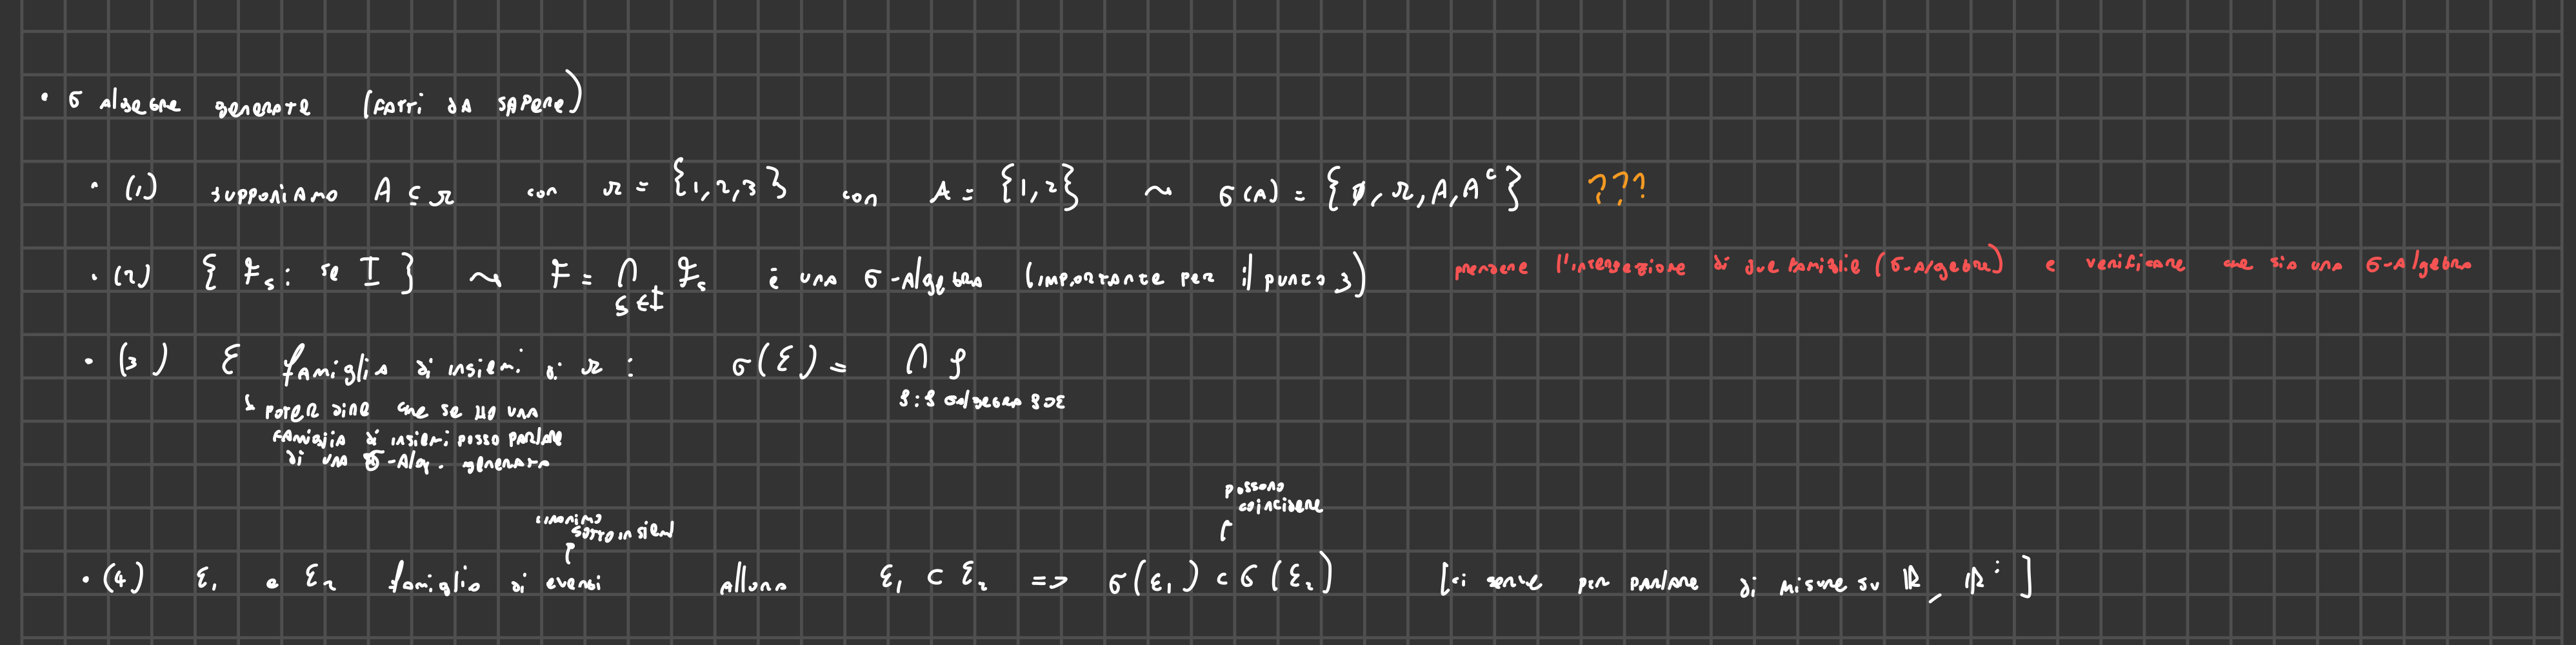 • σ Algebre generate (fatti da sapere)
• (1) supponiamo A ⊆ Ω con Ω = {1,2,3} con A = {1,2} ~ σ(A) = {∅, Ω, A, Aᶜ} ???
• (2) {𝓕ₛ : s ∈ I} ~ 𝓕 = ⋂ 𝓕ₛ è una σ-Algebra (importante per il punto 3) prendere l'intersezione di due famiglie (σ-Algebra) e verificare che sia una σ-Algebra
s ∈ I
• (3) ℰ famiglia di insiemi di Ω : σ(ℰ) = ⋂ 𝒢
𝒢 : 𝒢 σalgebra 𝒢⊃ℰ
↳ poter dire che se ho una
famiglia di insiemi posso parlare
di una σ-Alg. generata
possono
coincidere
sinonimo
sottoinsiemi
• (4) ℰ₁ e ℰ₂ famiglia di eventi allora ℰ₁ ⊂ ℰ₂ => σ(ℰ₁) ⊂ σ(ℰ₂) [ci serve per parlare di misure su ℝ, ℝ]